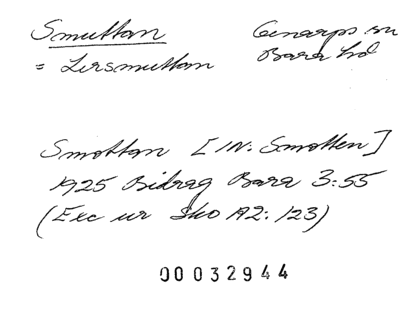 Smuttan Genarps sn
= Lersmuttan Bara hd
Smottan [IN: Smotten]
1925 Bidrag Bara 3:55
(Exc ur Sko A2: 123)
00032944